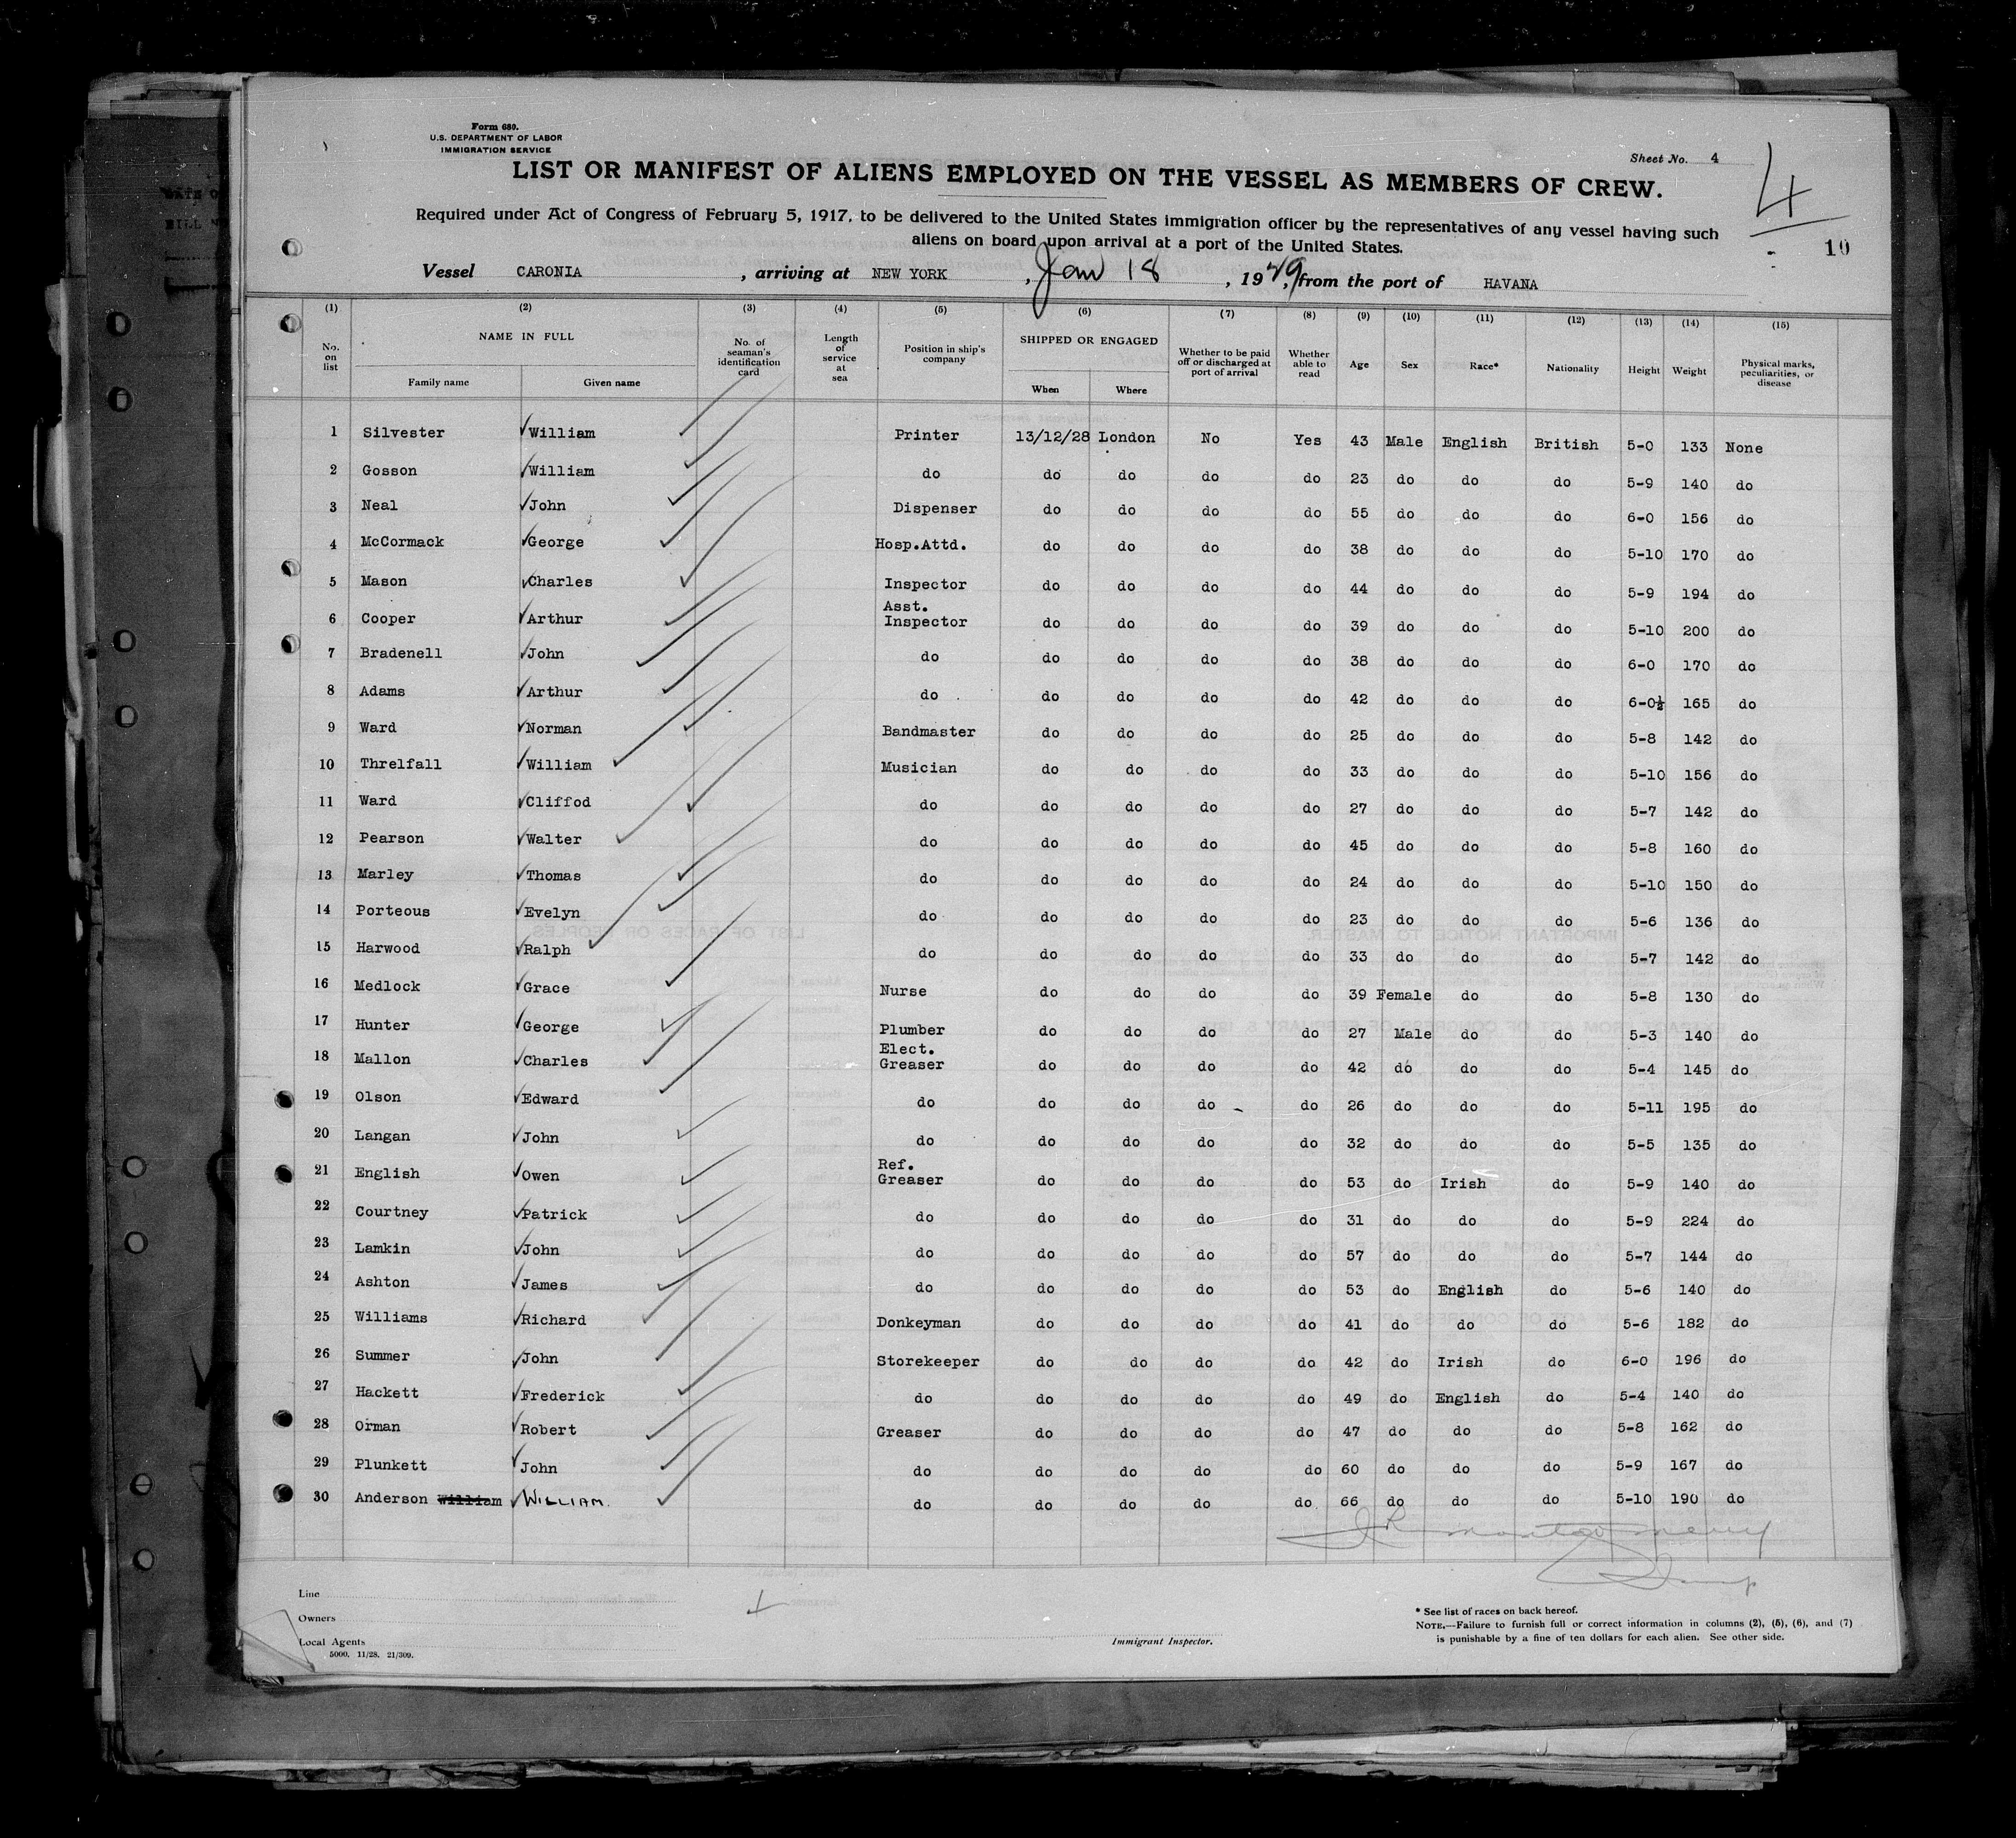 Form 680.
U.S. DEPARTMENT OF LABOR
IMMIGRATION SERVICE
Sheet No. 4
4
LIST OR MANIFEST OF ALIENS EMPLOYED ON THE VESSEL AS MEMBERS OF CREW.
Required under Act of Congress of February 5, 1917, to be delivered to the United States immigration officer by the representatives of any vessel having such
aliens on board upon arrival at a port of the United States.
10
Vessel CARONIA, arriving at NEW YORK, Jan 18, 1929, from the port of HAVANA
(1) (2) (3) (4) (5) (6) (7) (8) (9) (10) (11) (12) (13) (14) (15)
No. on list NAME IN FULL Family name Given name No. of seaman's identification card Length of service at sea Position in ship's company SHIPPED OR ENGAGED When Where Whether to be paid off or discharged at port of arrival Whether able to read Age Sex Race* Nationality Height Weight Physical marks, peculiarities, or disease
1 Silvester William Printer 13/12/28 London No Yes 43 Male English British 5-0 133 None
2 Gosson William do do do do do 23 do do do 5-9 140 do
3 Neal John Dispenser do do do do 55 do do do 6-0 156 do
4 McCormack George Hosp.Attd. do do do do 38 do do do 5-10 170 do
5 Mason Charles Inspector do do do do 44 do do do 5-9 194 do
6 Cooper Arthur Asst. Inspector do do do do 39 do do do 5-10 200 do
7 Bradenell John do do do do do 38 do do do 6-0 170 do
8 Adams Arthur do do do do do 42 do do do 6-0½ 165 do
9 Ward Norman Bandmaster do do do do 25 do do do 5-8 142 do
10 Threlfall William Musician do do do do 33 do do do 5-10 156 do
11 Ward Cliffod do do do do do 27 do do do 5-7 142 do
12 Pearson Walter do do do do do 45 do do do 5-8 160 do
13 Marley Thomas do do do do do 24 do do do 5-10 150 do
14 Porteous Evelyn do do do do do 23 do do do 5-6 136 do
15 Harwood Ralph do do do do do 33 do do do 5-7 142 do
16 Medlock Grace Nurse do do do do 39 Female do do 5-8 130 do
17 Hunter George Plumber do do do do 27 Male do do 5-3 140 do
18 Mallon Charles Elect. Greaser do do do do 42 do do do 5-4 145 do
19 Olson Edward do do do do do 26 do do do 5-11 195 do
20 Langan John do do do do do 32 do do do 5-5 135 do
21 English Owen Ref. Greaser do do do do 53 do Irish do 5-9 140 do
22 Courtney Patrick do do do do do 31 do do do 5-9 224 do
23 Lamkin John do do do do do 57 do do do 5-7 144 do
24 Ashton James do do do do do 53 do English do 5-6 140 do
25 Williams Richard Donkeyman do do do do 41 do do do 5-6 182 do
26 Summer John Storekeeper do do do do 42 do Irish do 6-0 196 do
27 Hackett Frederick do do do do do 49 do English do 5-4 140 do
28 Orman Robert Greaser do do do do 47 do do do 5-8 162 do
29 Plunkett John do do do do do 60 do do do 5-9 167 do
30 Anderson William WILLIAM. do do do do do 66 do do do 5-10 190 do
JR Montgomery
Line
Owners
Local Agents
5000. 11/28. 21/309.
Immigrant Inspector.
* See list of races on back hereof.
NOTE.—Failure to furnish full or correct information in columns (2), (5), (6), and (7)
is punishable by a fine of ten dollars for each alien. See other side.